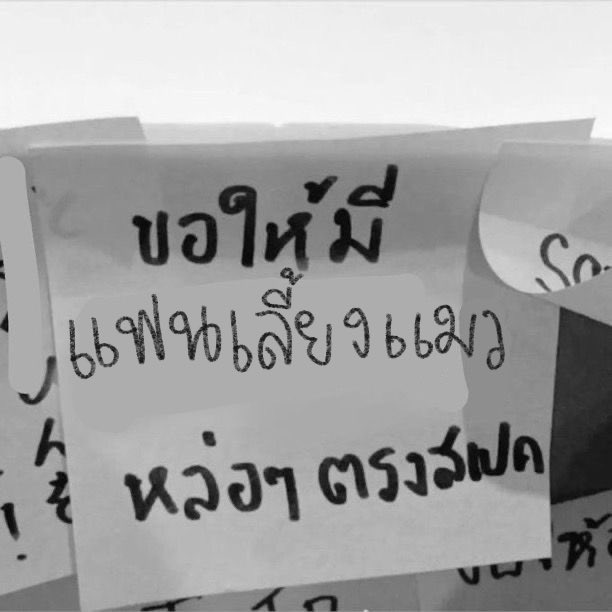 ขอให้มี
แฟนเลี้ยงแมว
หล่อๆ ตรงสเปค